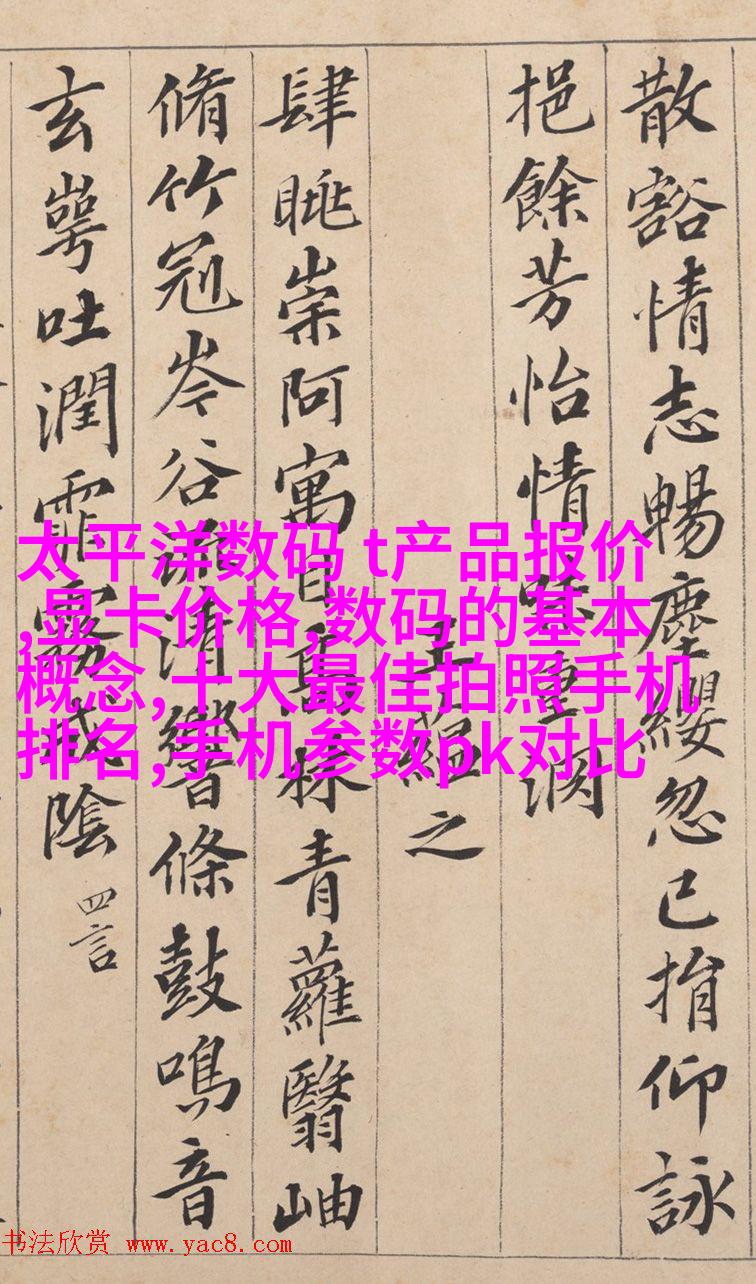 散豁情志暢塵纓忽已捐仰詠
挹餘芳怡情味重淵
王蘊之
肆眺崇阿寓目高林青蘿翳岫
脩竹冠岑谷流清響條鼓鳴音
玄崿吐潤霏霧成陰 四言
太平洋数码 t产品报价
,显卡价格,数码的基本
概念,十大最佳拍照手机
排名,手机参数pk对比
书法欣赏 www.yac8.com